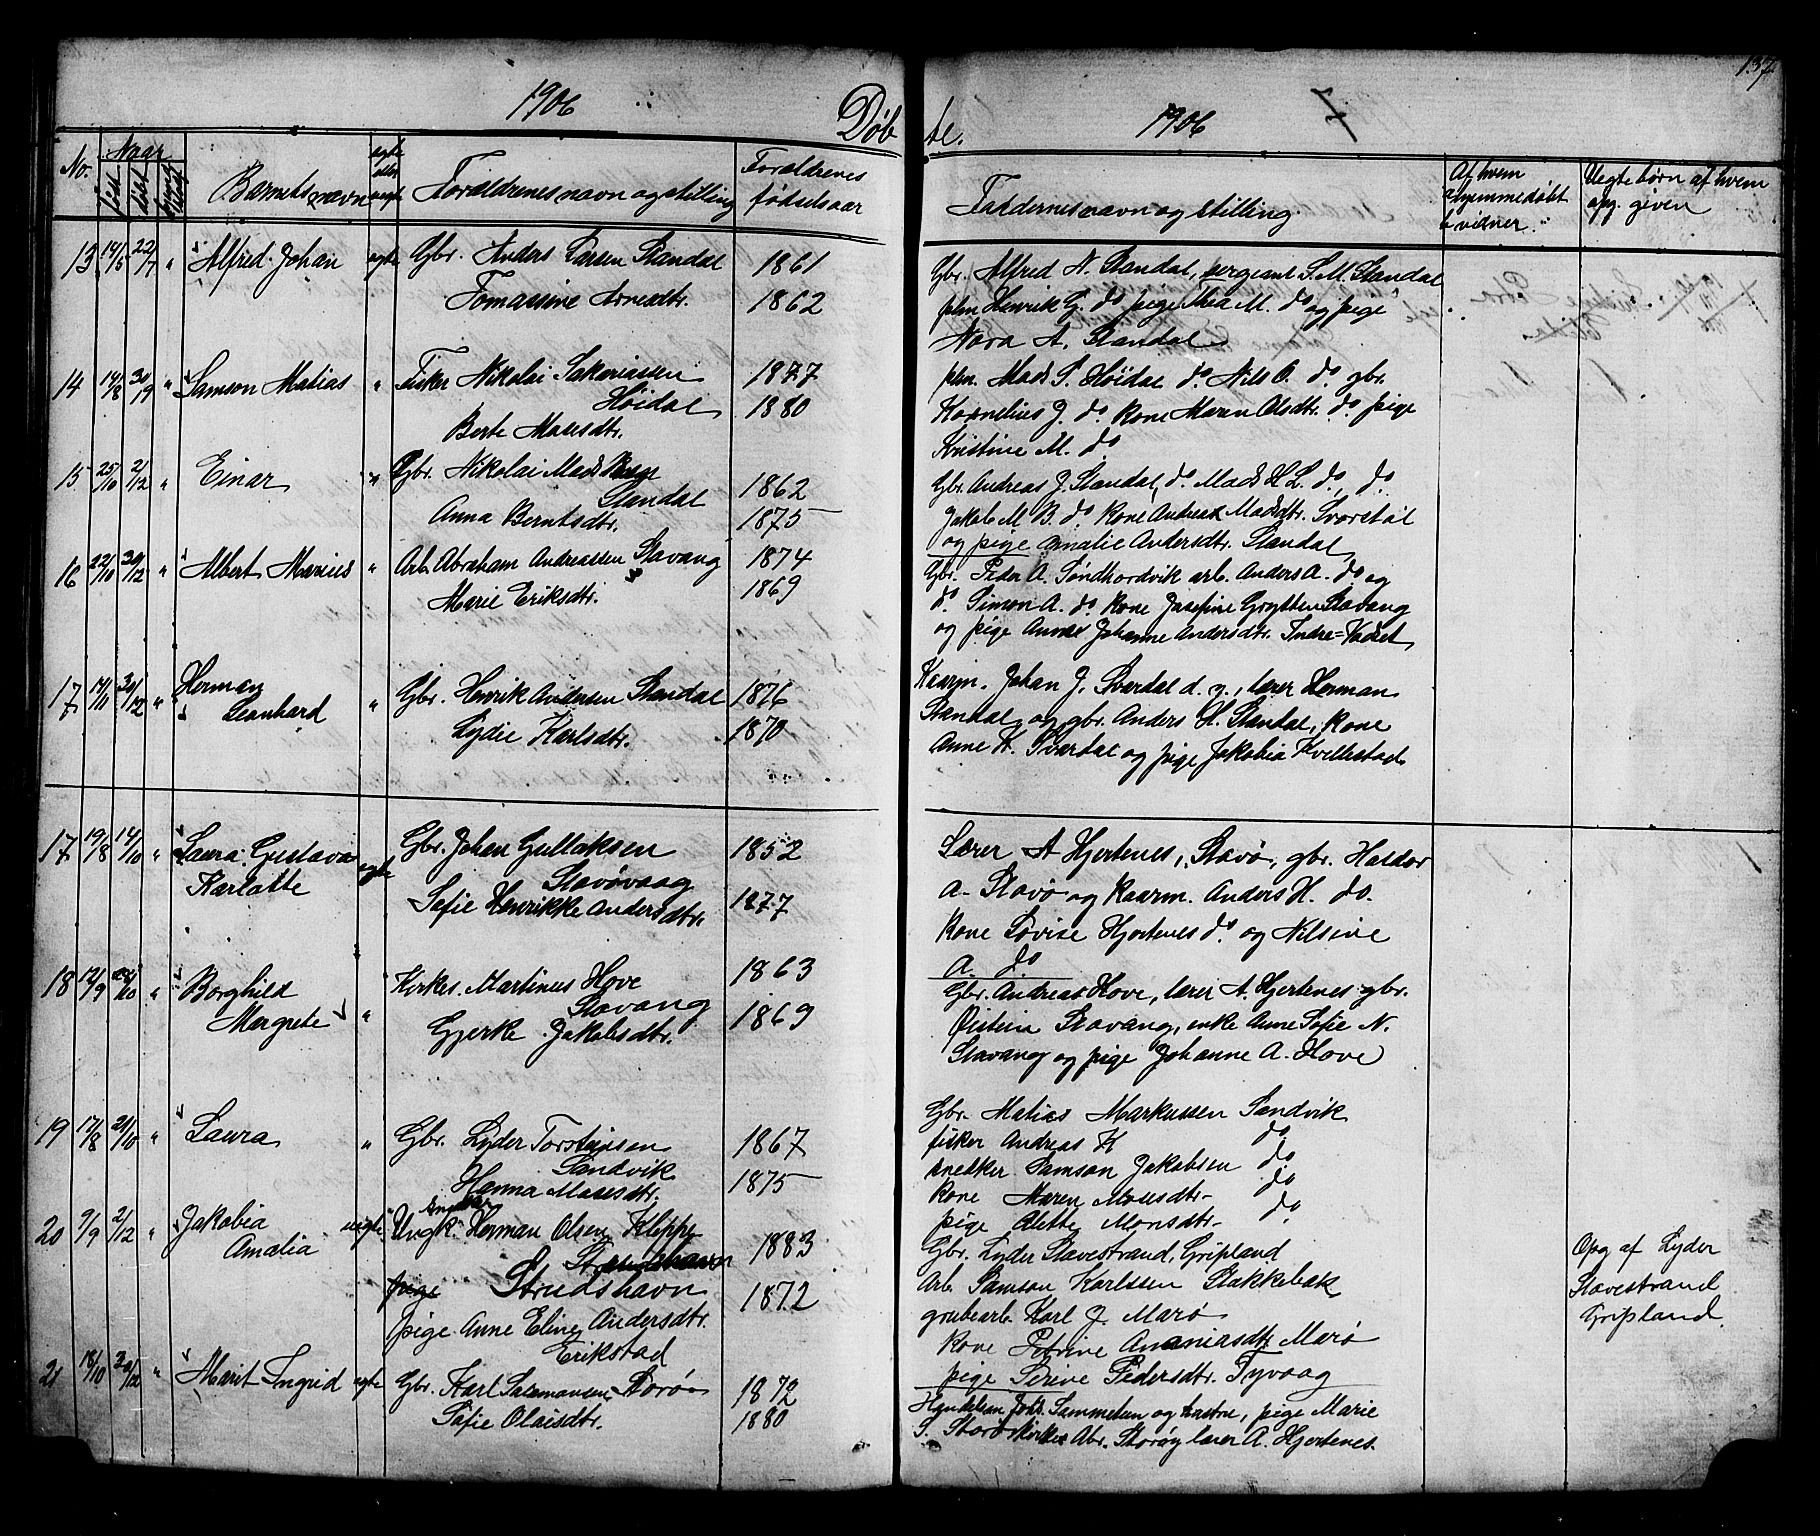 1906
Døb
te.
1906
7
137
No.
Naar
født
døbt
Barnets navn
ægte eller uægte
Forældrenes navn og stilling
Forældrenes fødselsaar
Faddernes navn og stilling.
Af hvem hjemmedøbt & vidner.
Uegte børn af hvem opg. given
13 14/5 22/7 " Alfred Johan ægte Gbr. Anders Larsen Standal 1861
Tomassine Arnesdtr. 1862
Gbr. Alfred N. Standal, sergeant S. M. Standal
plm Henrik G. do pige Thea M. do og pige
Nora A. Standal
14 14/8 30/9 " Samson Matias " Fisker Nikolai Sakariassen 1877
Høidal 1880
Berte Mosesdtr.
plm. Mads S. Høidal do. Nils O. do. gbr.
Kornelius J. do kone Maren Olsdtr. do pige
Kristine M. do
15 25/10 2/12 " Einar " Gbr. Nikolai Mads
Standal 1862
Anna Berntsdtr. 1875
Gbr. Andreas J. Standal, do. Mads H L. do, do.
Jakob M B. do. kone Andrea Madsdtr. Svorstøl
og pige Amalie Andersdtr. Standal
16 22/10 30/12 " Albert Marius " Arb. Abraham Andreassen Stavang 1874
Marie Eriksdtr. 1869
Gbr. Peder A. Søndhordvik arb. Anders A. do og
do. Simon A. do. kone Josefine Grytten Stavang
og pige Anna Johanne Andersdtr. Indre=Vasset
17 14/11 30/12 " Herman Leonhard " Gbr. Henrik Andersen Standal 1876
Lydie Karlsdtr. 1870
Kaarm. Johan J. Sværdal d. y., lærer Herman
Standal og gbr. Anders H. Standal, kone
Anne K. Sværdal og pige Jakobia Kvellestad
17 19/8 14/10 " Laura Gustava ægte Gbr. Johan Gullaksen 1852
Karlotte
Stavøvaag
Sofie Henrikke Andersdtr. 1877
Lærer A Hjertenes, Stavø, gbr. Haldor
A. Stavø og kaarm. Anders H. do.
kone Lovise Hjertenes do og Nilsine
A. do
18 12/9 28/10 " Borghild " Kirkes. Martinus Hove 1863
Margrete
Stavang
Gjerke Jakobsdtr. 1869
Gbr. Andreas Hove, lærer A. Hjertenes gbr.
Øistein Stavang, enke Anne Sofie N.
Stavang og pige Johanne A. Hove
19 17/8 21/10 " Laura " Gbr. Lyder Torsteinsen 1867
Sandvik
Hanna Mosesdtr. 1875
Gbr. Matias Markussen Sandvik
fisker Andreas K do
snedker Samson Jakobsen do
kone Maren Monsdtr. do
pige Alette Monsdtr. do
20 9/9 2/12 " Jakobia Amalia uægte Ungk. Herman Olsen Klippe 1883
Strudshavn
pige
pige Anne Eline Andersdtr. 1872
Erikstad
Gbr. Lyder Stavestrand, Gripland
Arb. Samson Karlssen Stokkebak
grubearb. Karl J. Marø
kone Petrine Ananiasdtr. Marø
pige Serine Pedersdtr. Tyvaag
Opg af Lyder
Stavestrand
Gripland.
21 18/10 30/12 " Marit Ingrid ægte Gbr. Karl Salamonsen Storø 1872
Sofie Olaisdtr. 1880
Handelsm Joh. Sammelsen og hustru, pige Marie
S. Storø kirkes Abr. Storøy lærer A. Hjertenes.